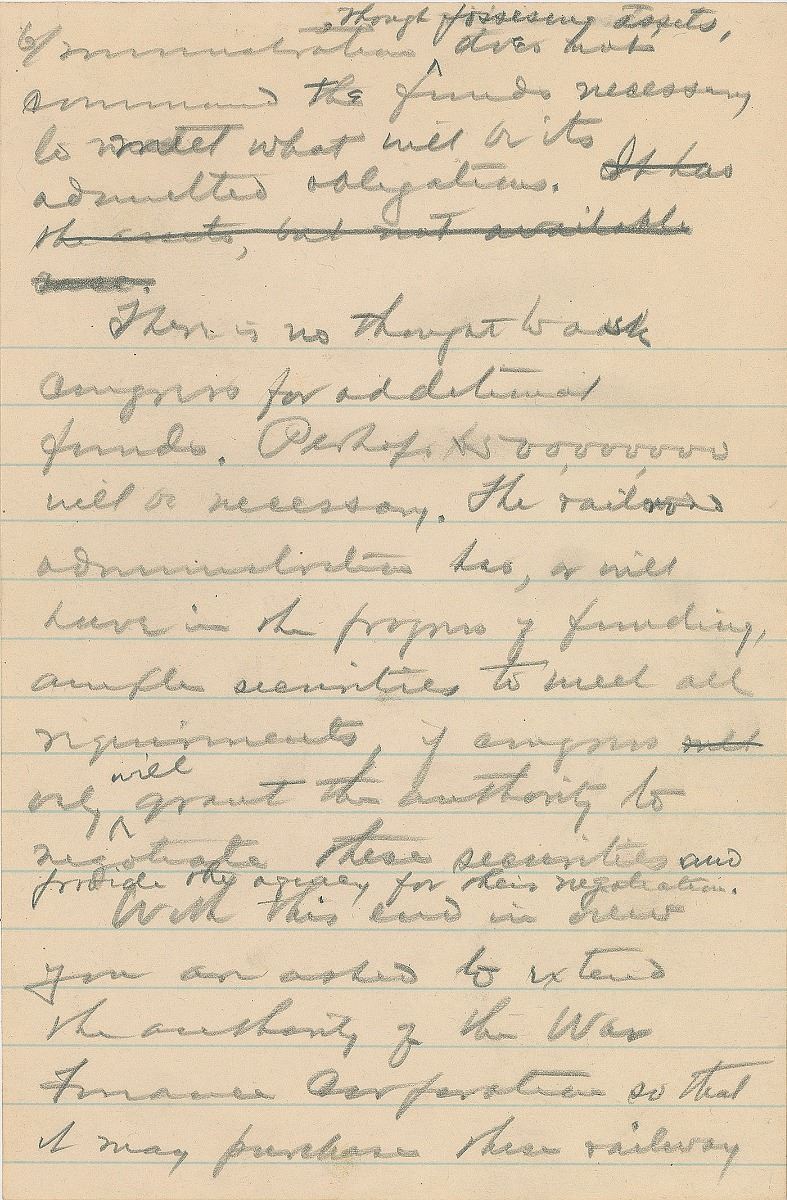 6/ Though possessing assets,
ministration does not
command the funds necessary
to meet what will be its
admitted obligations. It has
the assets, but not available
There is no thought to ask
congress for additional
funds. Perhaps $500,000,000
will be necessary. The railroad
administration has, or will
have in the progress of funding,
ample securities to meet all
requirements, if congress will
will
only grant the authority to
negotiate these securities and
provide the agency for their negotiation.
With this end in view
you are asked to extend
the authority of the War
Finance Corporation so that
it may purchase these railway